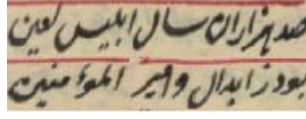 صد هزاران سال ابلیس لعین
بود ز ابدال و امیر المؤمنین